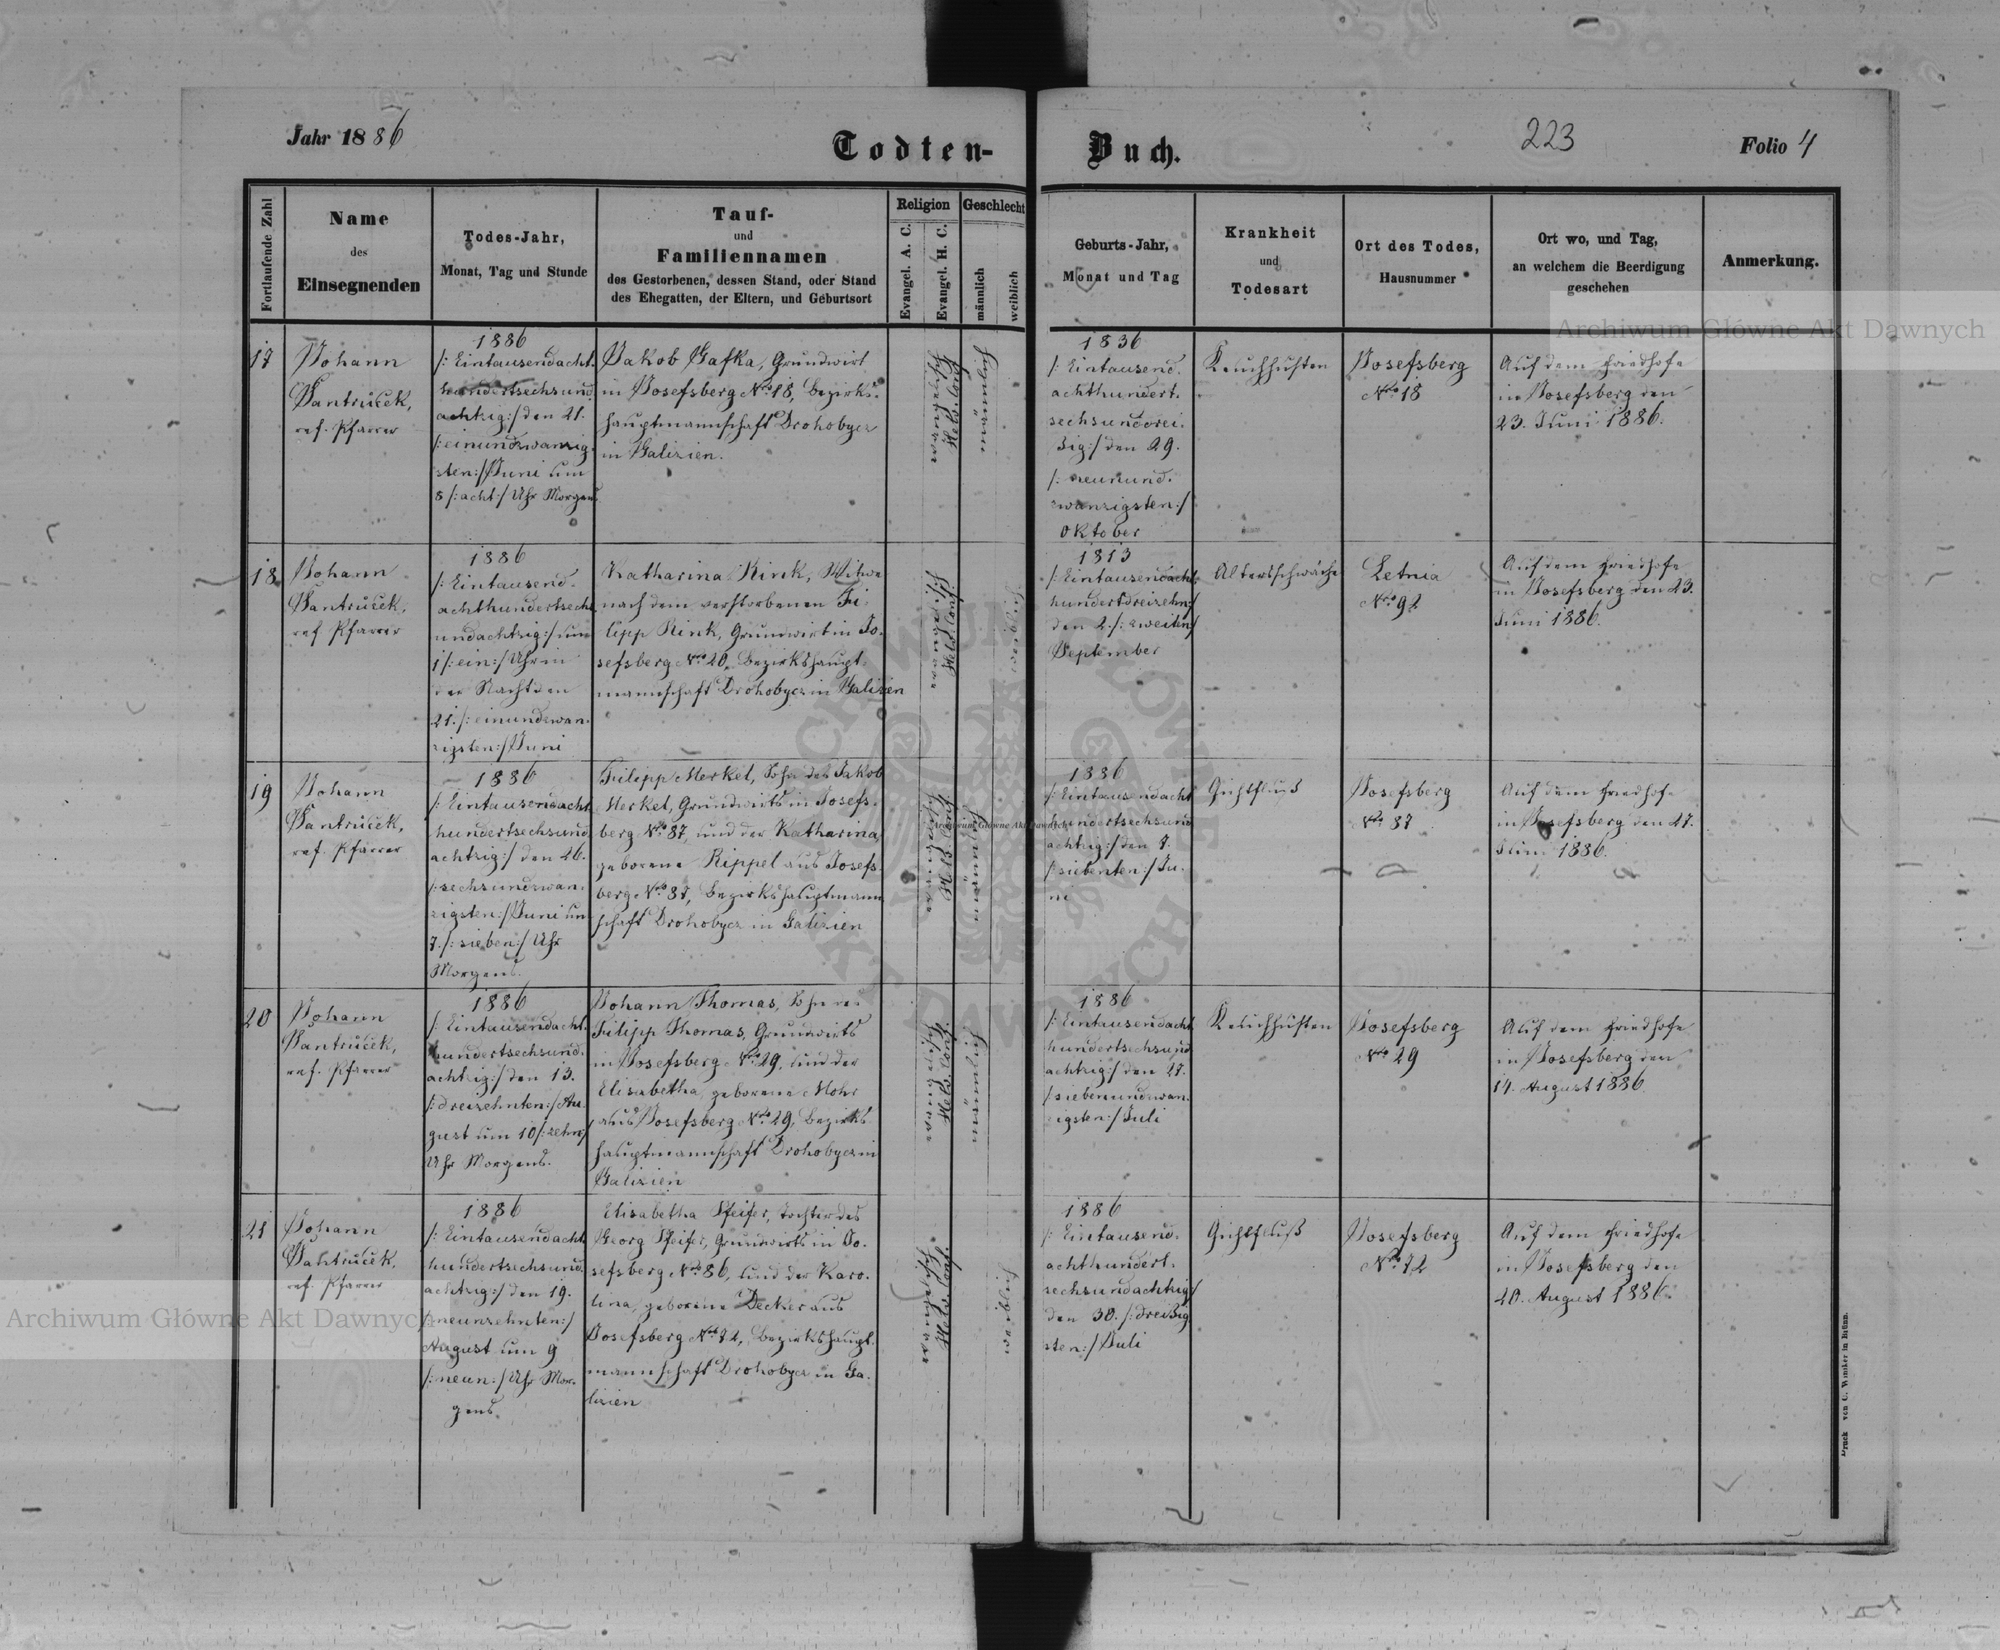 Jahr 1886
Todten-
Buch.
223
Folio 4
Fortlaufende Zahl
Name
des
Einsegnenden
Todes-Jahr,
Monat, Tag und Stunde
Tauf-
und
Familiennamen
des Gestorbenen, dessen Stand, oder Stand
des Ehegatten, der Eltern, und Geburtsort
Religion
Evangel. A. C.
Evangel. H. C.
Geschlecht
männlich
weiblich
Geburts-Jahr,
Monat und Tag
Krankheit
und
Todesart
Ort des Todes,
Hausnummer
Ort wo, und Tag,
an welchem die Beerdigung
geschehen
Anmerkung.
17
Johann
Jantrůček,
ref. Pfarrer
1886
/: Eintausendacht-
hundertsechsund
achtzig :/ den 21.
/: einundzwanzig-
sten :/ Juni um
8 /: acht :/ Uhr Morgens
Jakob Gafka, Grundwirt
in Josefsberg No 18, Bezirks-
hauptmannschaft Drohobycz
in Galizien.
Helv. Conf.
1836
/: Eintausend-
achthundert-
sechsunddrei-
ßig :/ den 29.
/: neunund-
zwanzigsten :/
Oktober
Keuchhusten
Josefsberg
No 18
Auf dem Friedhofe
in Josefsberg den
23. Juni 1886.
18
Johann
Jantrůček,
ref Pfarrer
1886
/: Eintausend-
achthundertsechs
undachtzig :/ um
1 /: ein :/ Uhr in
der Nacht den
21. /: einundzwan-
zigsten :/ Juni
Katharina Rink, Witwe
nach dem verstorbenen Fi-
lipp Rink, Grundwirt in Jo-
sefsberg No 20, Bezirkshaupt-
mannschaft Drohobycz in Galizien
Helv. Conf.
1813
/: Eintausendacht-
hundertdreizehn :/
den 2. /: zweiten :/
September
Altersschwäche
Letnia
No 92
Auf dem Friedhofe
in Josefsberg den 23.
Juni 1886.
19
Johann
Jantrůček,
ref. Pfarrer
1886
/: Eintausendacht
hundertsechsund
achtzig :/ den 26.
/: sechsundzwan-
zigsten :/ Juni um
7. /: sieben :/ Uhr
Morgens.
Filipp Merkel, Sohn des Jakob
Merkel, Grundwirts in Josefs-
berg No 87, und der Katharina,
geborene Rippel aus Josefs-
berg No 87, Bezirkshauptmann
schaft Drohobycz in Galizien
Helv. Conf.
1886
/: Eintausendacht
hundertsechsund
achtzig :/ den 7.
/: siebenten :/ Ju-
ni
Josefsberg
No 87
Auf dem Friedhofe
in Josefsberg den 27.
Juni 1886.
20
Johann
Jantrůček,
ref. Pfarrer
1886
/: Eintausendacht-
hundertsechsund-
achtzig :/ den 13.
/: dreizehnten :/ Au-
gust um 10 /: zehn :/
Uhr Morgens.
Johann Thomas, Sohn des
Filipp Thomas, Grundwirts
in Josefsberg No 29, und der
Elisabetha, geborene Mohr
aus Josefsberg No 29, Bezirks
hauptmannschaft Drohobycz in
Galizien
Helv. Conf.
1886
/: Eintausendacht
hundertsechsund
achtzig :/ den 27.
/: siebenundzwan-
zigsten :/ Juli
Keuchhusten
Josefsberg
No 29
Auf dem Friedhofe
in Josefsberg den
14. August 1886
21
Johann
Jantrůček,
ref. Pfarrer
1886
/: Eintausendacht
hundertsechsund
achtzig :/ den 19.
/: neunzehnten :/
August um 9
/: neun :/ Uhr Mor-
gens.
Elisabetha Pfeifer, Tochter des
Georg Pfeifer, Grundwirts in Jo-
sefsberg No 86, und der Karo-
lina, geborene Decker aus
Josefsberg No 72, Bezirkshaupt-
mannschaft Drohobycz in Ga-
lizien
Helv. Conf.
1886
/: Eintausend-
achthundert-
sechsundachtzig :/
den 30. /: dreißig
sten :/ Juli
Josefsberg
No 72
Auf dem Friedhofe
in Josefsberg den
20. August 1886.
Druck von C. Winiker in Brünn.
Archiwum Główne Akt Dawnych
Archiwum Główne Akt Dawnych
Archiwum Główne Akt Dawnych
ARCHIWUM GŁÓWNE AKT DAWNYCH